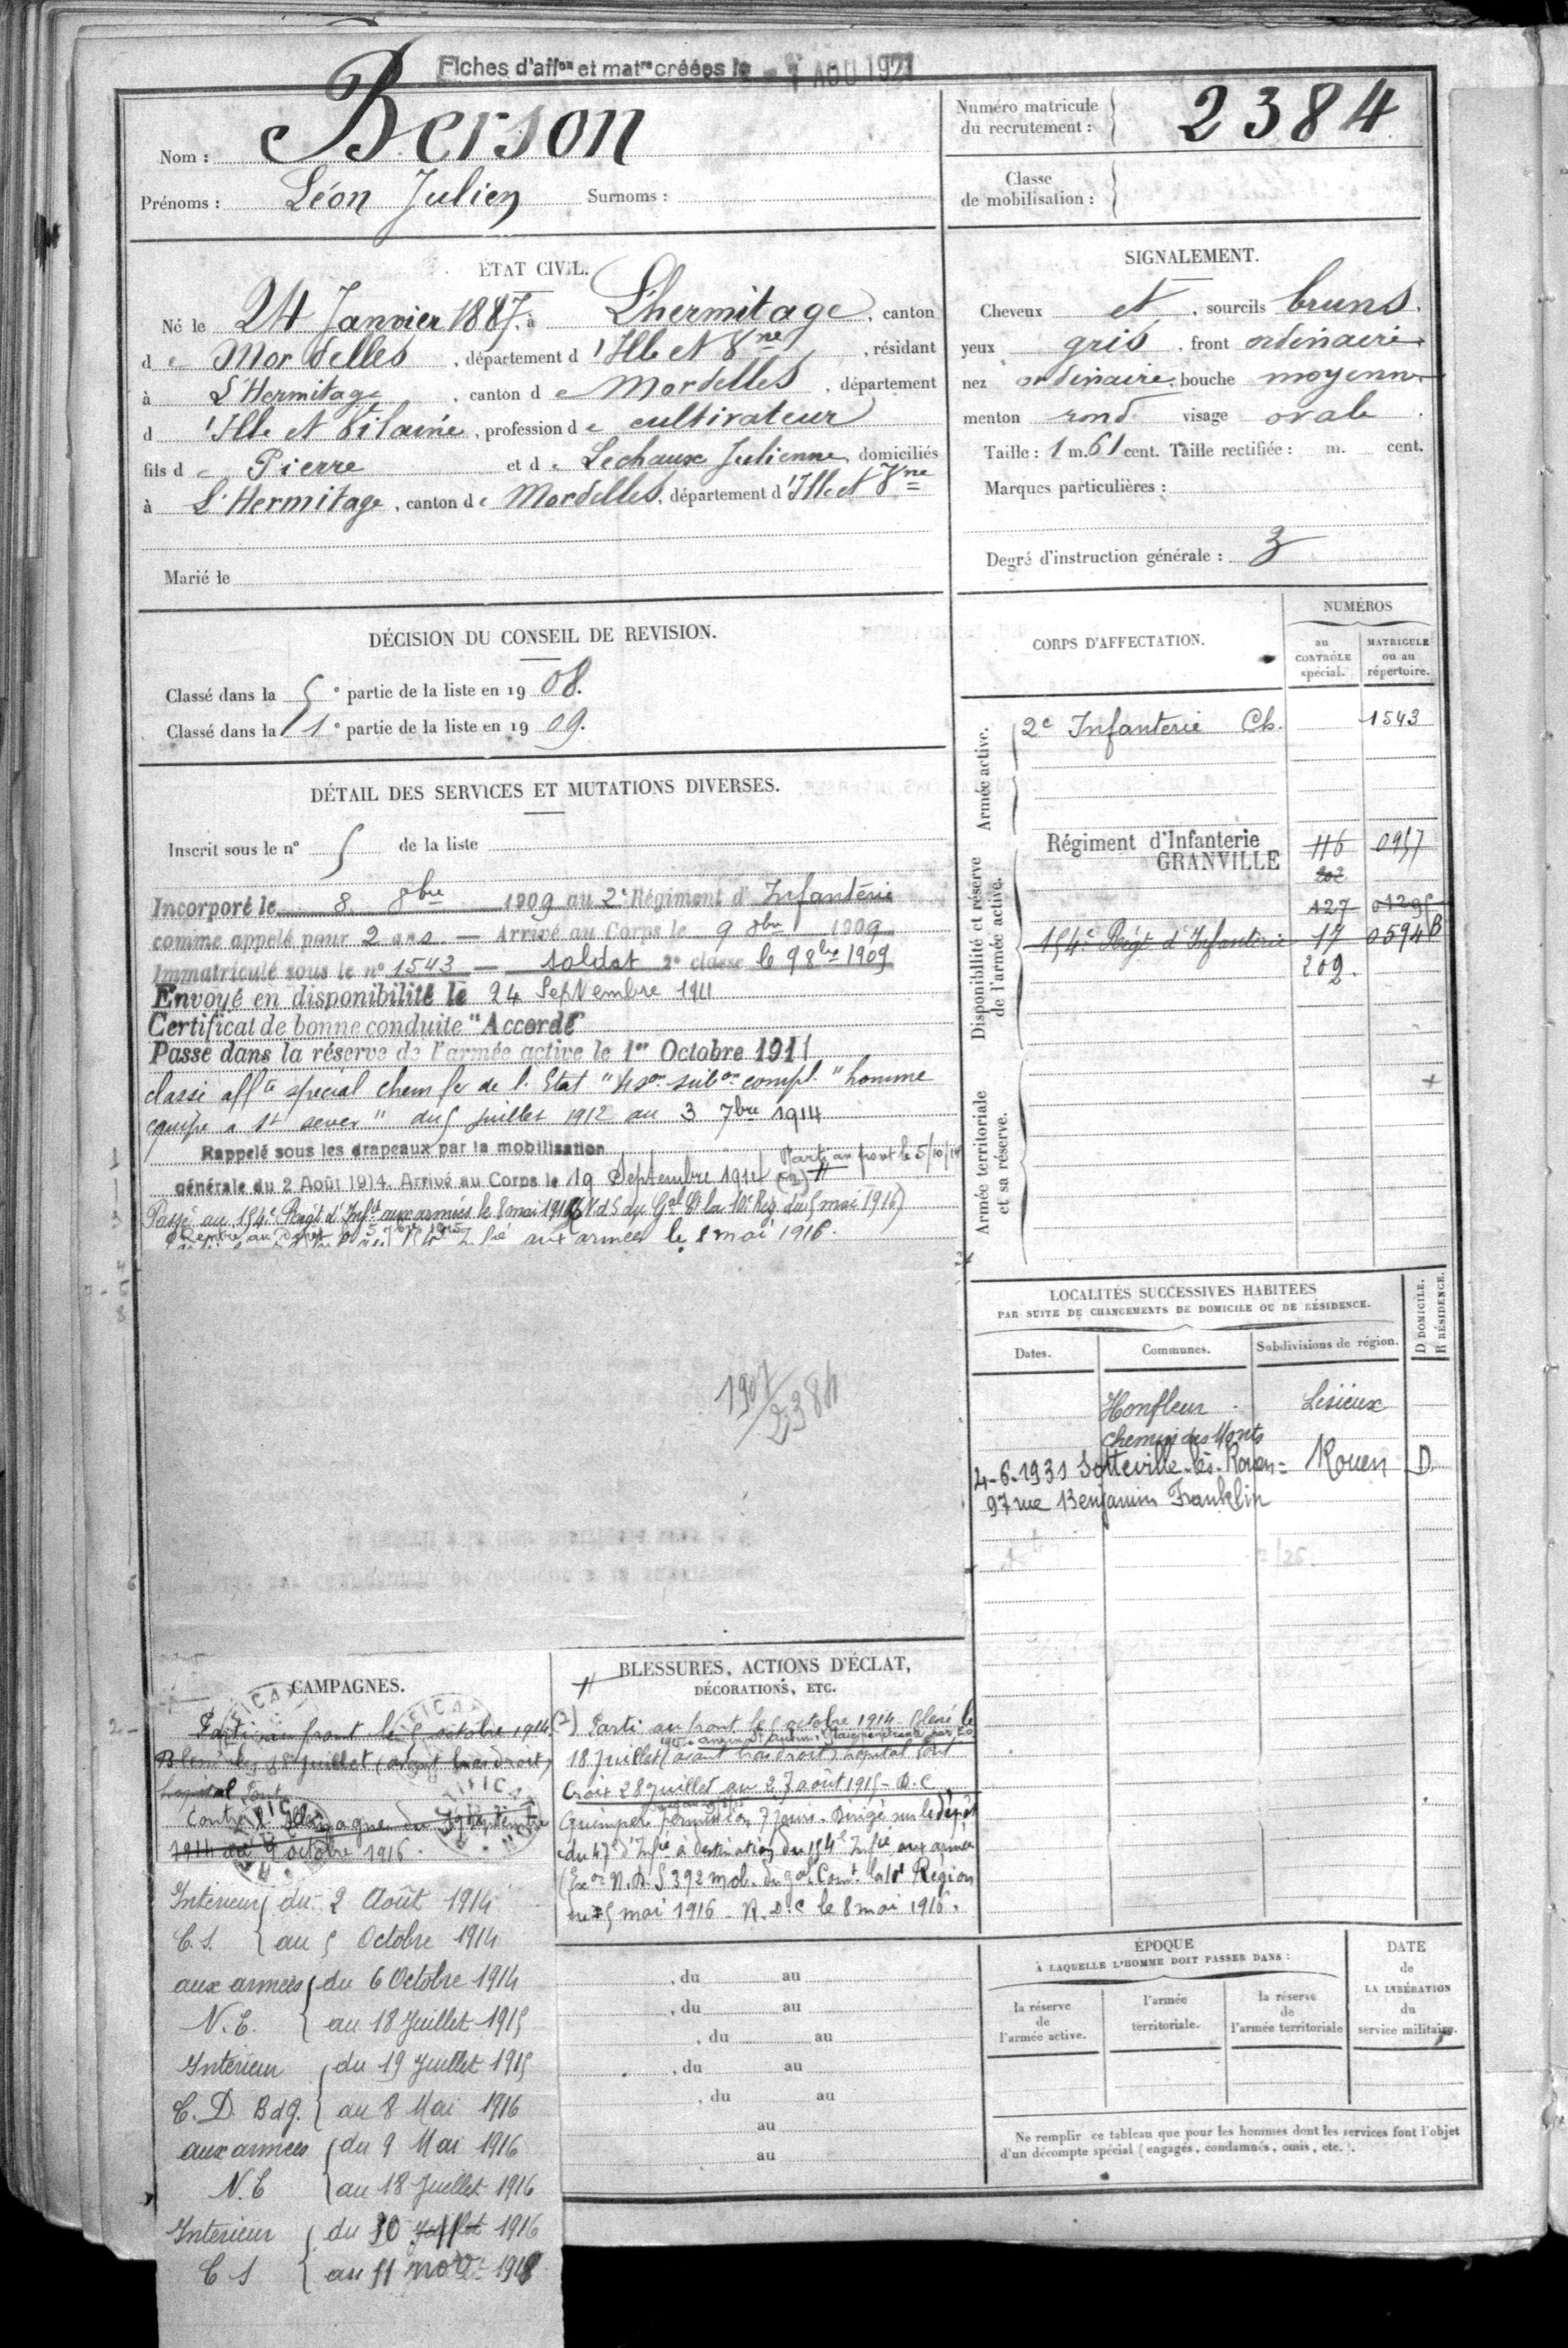 Fiches d'aff<sup>on</sup> et mat<sup>re</sup> créées le AOU 1921
Nom : Berson
Prénoms : Léon Julien Surnoms :
Numéro matricule du recrutement : 2384
Classe de mobilisation :
ÉTAT CIVIL.
Né le 24 Janvier 1887, à L'hermitage, canton
de Mordelles, département d'Ille et Vne, résidant
à L'Hermitage, canton de Mordelles, département
d'Ille et Vilaine, profession de cultivateur
fils de Pierre et de Lechaux Julienne, domiciliés
à L'Hermitage, canton de Mordelles, département d'Ille et Vne
Marié le
SIGNALEMENT.
Cheveux et, sourcils bruns.
yeux gris, front ordinaire
nez ordinaire, bouche moyenne
menton rond visage ovale.
Taille : 1 m. 61 cent. Taille rectifiée : m. cent.
Marques particulières :
Degré d'instruction générale : 3
DÉCISION DU CONSEIL DE REVISION.
Classé dans la 5e partie de la liste en 1908.
Classé dans la 1e partie de la liste en 1909.
DÉTAIL DES SERVICES ET MUTATIONS DIVERSES.
Inscrit sous le n° de la liste
Incorporé le 8 8bre 1909 au 2e Régiment d'Infanterie
comme appelé pour 2 ans — Arrivé au Corps le 9 8bre 1909
Immatriculé sous le n° 1543 — soldat 2e classe le 9 8bre 1909
Envoyé en disponibilité le 24 Septembre 1911
Certificat de bonne conduite "Accordé"
Passé dans la réserve de l'armée active le 1er Octobre 1911
classé affté spécial chem fer de l'Etat "4 son subon compl." homme
équipe à St sever" du 5 juillet 1912 au 3 7bre 1914
Rappelé sous les drapeaux par la mobilisation
générale du 2 Août 1914. Arrivé au Corps le 19 Septembre 1914 Parti au front le 5/10/14 (2)
Passé au 154e Regt d'Inftie aux armées le 8 mai 1916 (N d S du Gal Ct la 10e Reg. du 5 mai 1916)
aux armées le 8 mai 1916.
1907/2384
CORPS D'AFFECTATION.
NUMÉROS
au CONTRÔLE spécial.
MATRICULE ou au répertoire.
Armée active.
2e Infanterie Ch. 1543
Disponibilité et réserve de l'armée active.
Régiment d'Infanterie 116 0957
GRANVILLE
202
127 01295
154e Régt d'Infanterie 17 0594B
209.
Armée territoriale et sa réserve.
LOCALITÉS SUCCESSIVES HABITÉES
PAR SUITE DE CHANGEMENTS DE DOMICILE OU DE RÉSIDENCE.
Dates. Communes. Subdivisions de région. D DOMICILE. R RÉSIDENCE.
Honfleur Lisieux
chemin des Monts
4-6-1931 Sotteville-lès-Rouen = Rouen D.
97 rue Benjamin Franklin
CAMPAGNES.
Parti au front le 5 octobre 1914.
Blessé le 18 juillet (avant bras droit)
hopital Pont
Contre l'Allemagne du 19 septembre
1914 au 9 octobre 1916.
Intérieur du 2 Août 1914
C.S. au 5 Octobre 1914
aux armées du 6 Octobre 1914
N.E. au 18 Juillet 1915
Intérieur du 19 Juillet 1915
C.D. Bdg. au 8 Mai 1916
aux armées du 9 Mai 1916
N.E au 18 Juillet 1916
Intérieur du 10 Juillet 1916
C S au 11 nov 1918
BLESSURES, ACTIONS D'ÉCLAT,
DÉCORATIONS, ETC.
(2) Parti au front le 5 octobre 1914 - Blessé le
18 Juillet (avant bras droit) hopital Pont
Croix 28 juillet au 27 août 1915 - D.C
Quimper permission 7 jours. Dirigé sur le dépôt
du 47e d'Inftie à destination du 154e Inftie aux armées
(Exon N. de S 392 mob. du gal Comt la 10e Région
du 5 mai 1916 - R.D.C le 8 mai 1916.
, du au
, du au
, du au
, du au
, du au
au
au
ÉPOQUE
À LAQUELLE L'HOMME DOIT PASSER DANS :
la réserve de l'armée active.
l'armée territoriale.
la réserve de l'armée territoriale
DATE de LA LIBÉRATION du service militaire.
Ne remplir ce tableau que pour les hommes dont les services font l'objet
d'un décompte spécial (engagés, condamnés, omis, etc.).